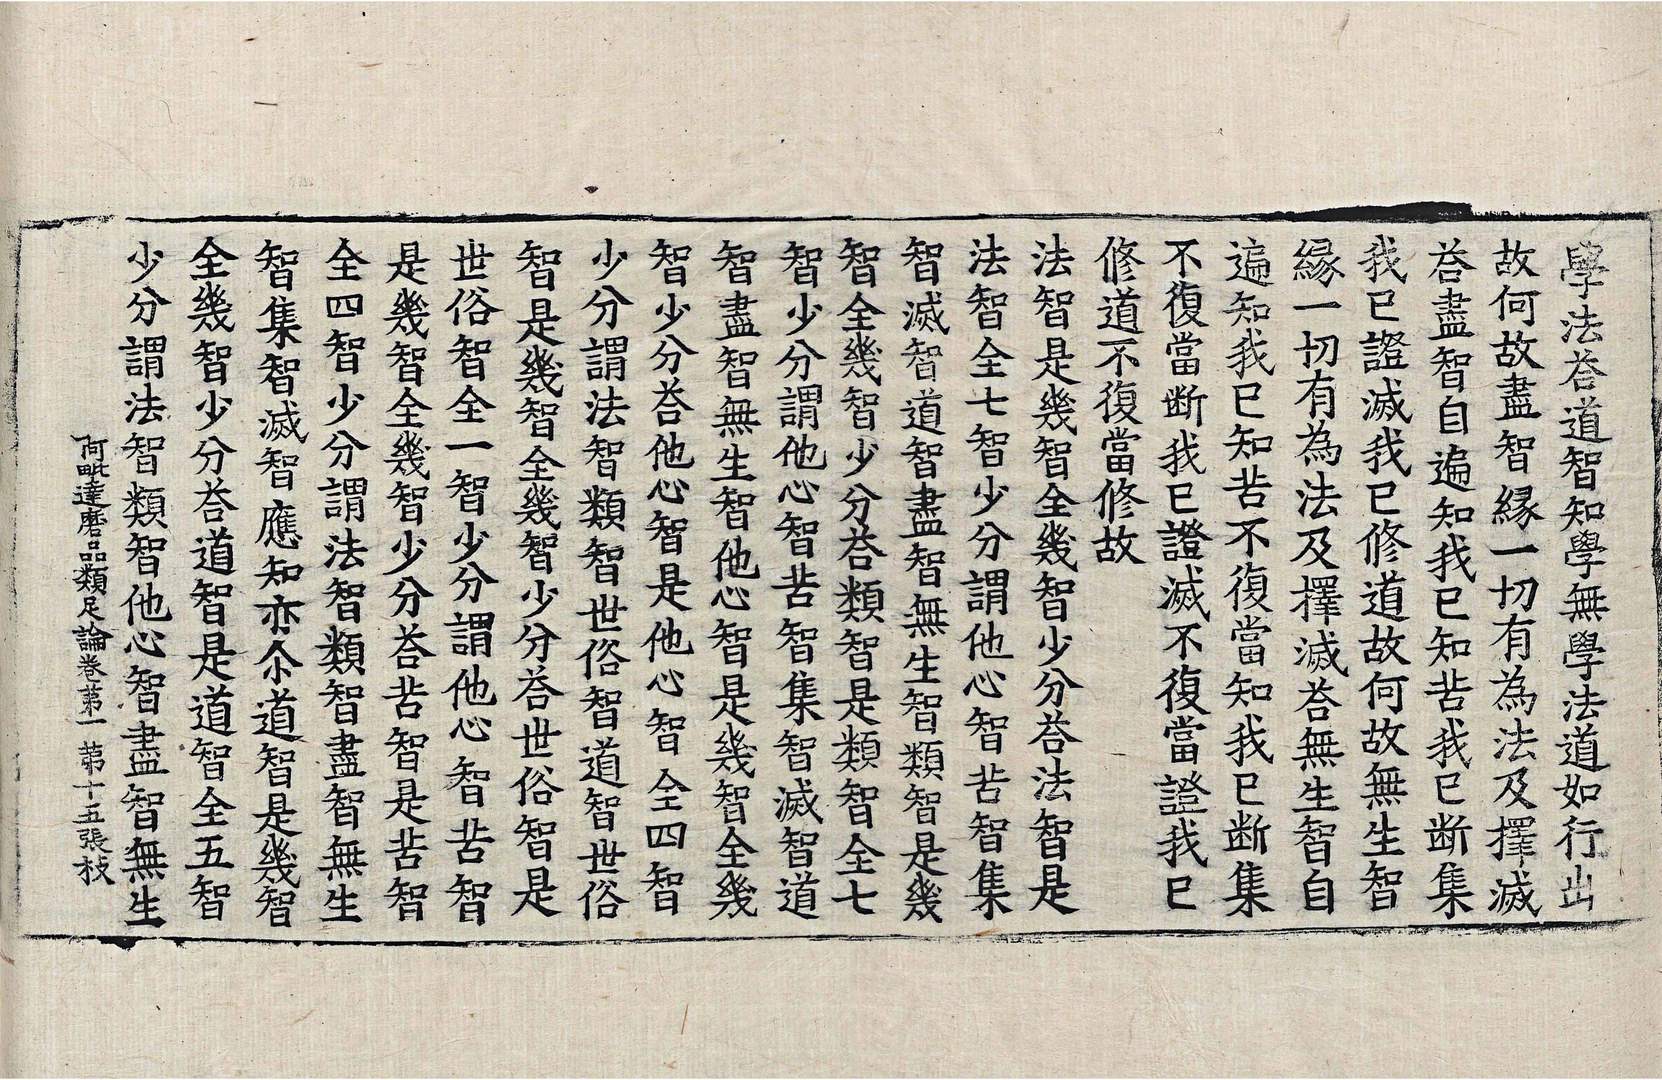 學法荅道智知學無學法道如行出
故何故盡智緣一切有為法及擇滅
荅盡智自遍知我已知苦我已斷集
我已證滅我已修道故何故無生智
緣一切有為法及擇滅荅無生智自
遍知我已知苦不復當知我已断集
不復當断我已證滅不復當證我已
修道不復當修故
法智是幾智全幾智少分荅法智是
法智全七智少分謂他心智苦智集
智滅智道智盡智無生智類智是幾
智全幾智少分荅類智是類智全七
智少分謂他心智苦智集智滅智道
智盡智無生智他心智是幾智全幾
智少分荅他心智是他心智全四智
少分謂法智類智世俗智道智世俗
智是幾智全幾智少分荅世俗智是
世俗智全一智少分謂他心智苦智
是幾智全幾智少分荅苦智是苦智
全四智少分謂法智類智盡智無生
智集智滅智應知亦尒道智是幾智
全幾智少分荅道智是道智全五智
少分謂法智類智他心智盡智無生
阿毗達磨品類足論卷第一 第十五張 㭍